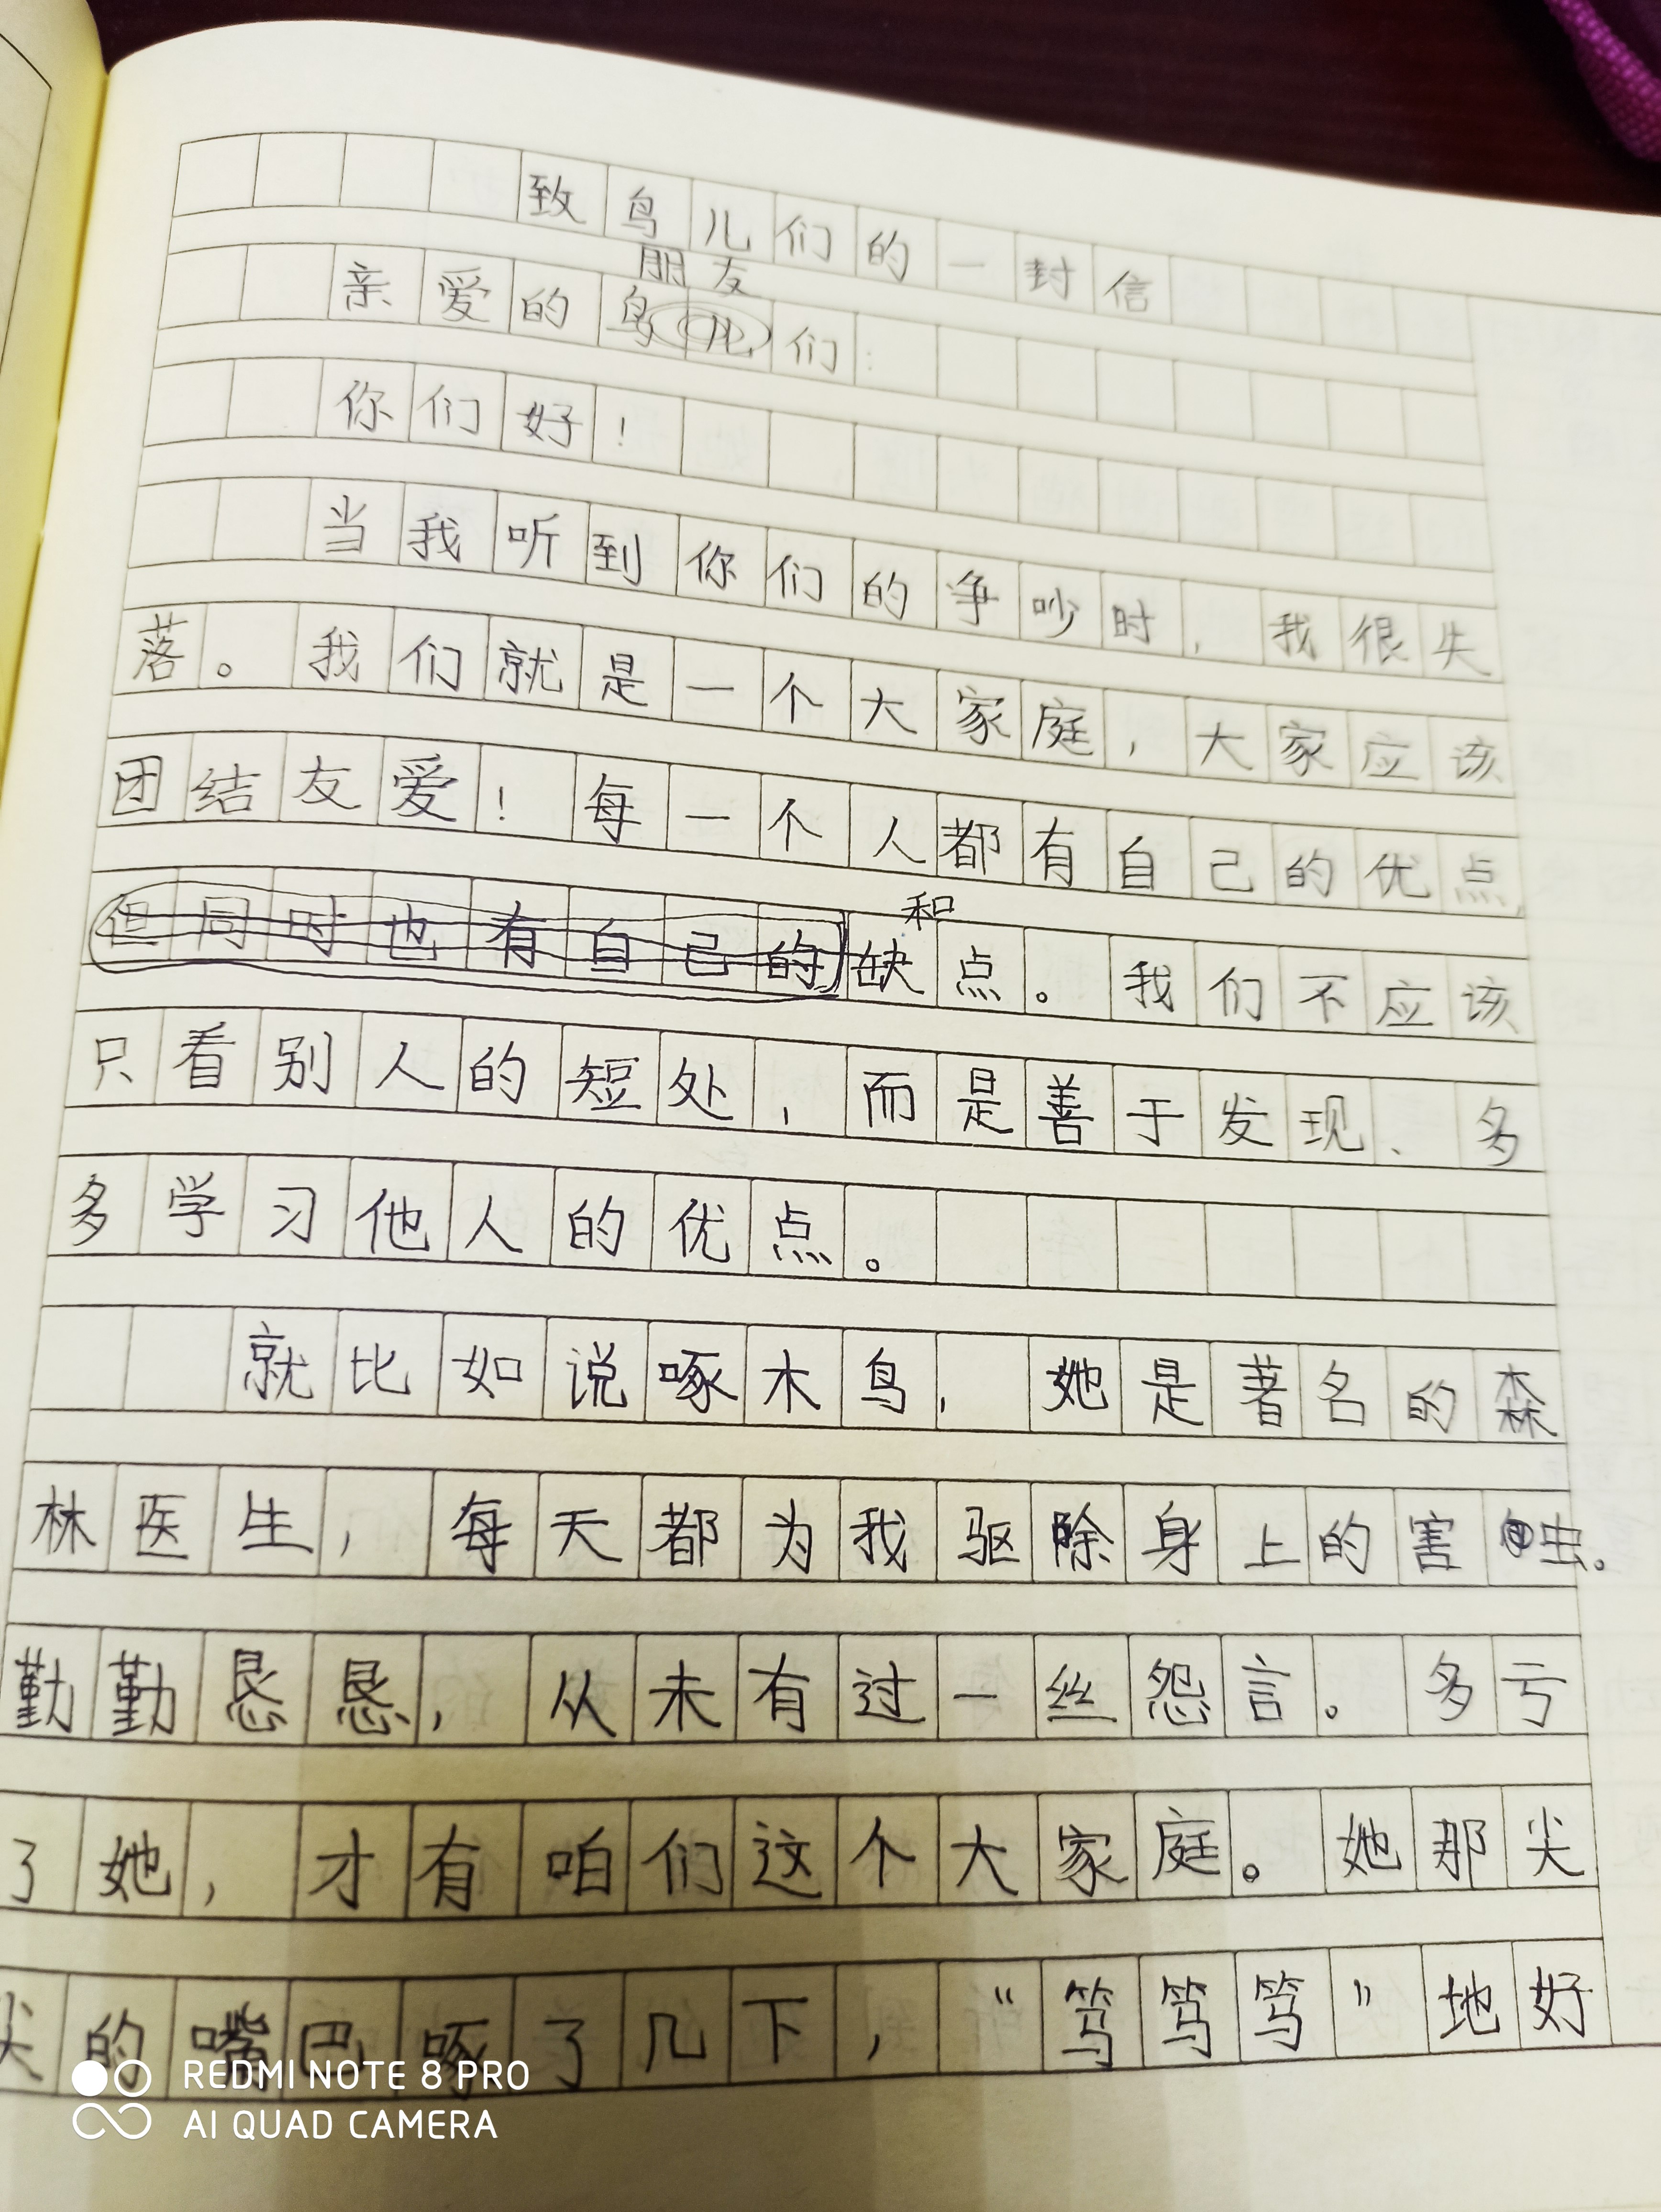 致鸟儿们的一封信
朋友
亲爱的鸟儿们：
你们好！
当我听到你们的争吵时，我很失
落。我们就是一个大家庭，大家应该
团结友爱！每一个人都有自己的优点，
和
但同时也有自己的缺点。我们不应该
只看别人的短处，而是善于发现、多
多学习他人的优点。
就比如说啄木鸟，她是著名的森
林医生，每天都为我驱除身上的害虫。
勤勤恳恳，从未有过一丝怨言。多亏
了她，才有咱们这个大家庭。她那尖
尖的嘴巴啄了几下，“笃笃笃”地好
REDMI NOTE 8 PRO
AI QUAD CAMERA